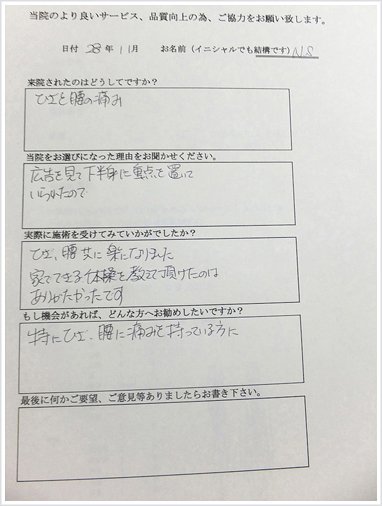 当院のより良いサービス、品質向上の為、ご協力をお願い致します。
日付 28年 11月 お名前(イニシャルでも結構です) N.S
来院されたのはどうしてですか?
ひざと腰の痛み
当院をお選びになった理由をお聞かせください。
広告を見て下半身に重点を置いて
いられたので
実際に施術を受けてみていかがでしたか?
ひざ、腰共に楽になりました
家でできる体操を教えて頂けたのは
ありがたかったです
もし機会があれば、どんな方へお勧めしたいですか?
特にひざ、腰に痛みを持っている方に
最後に何かご要望、ご意見等ありましたらお書き下さい。